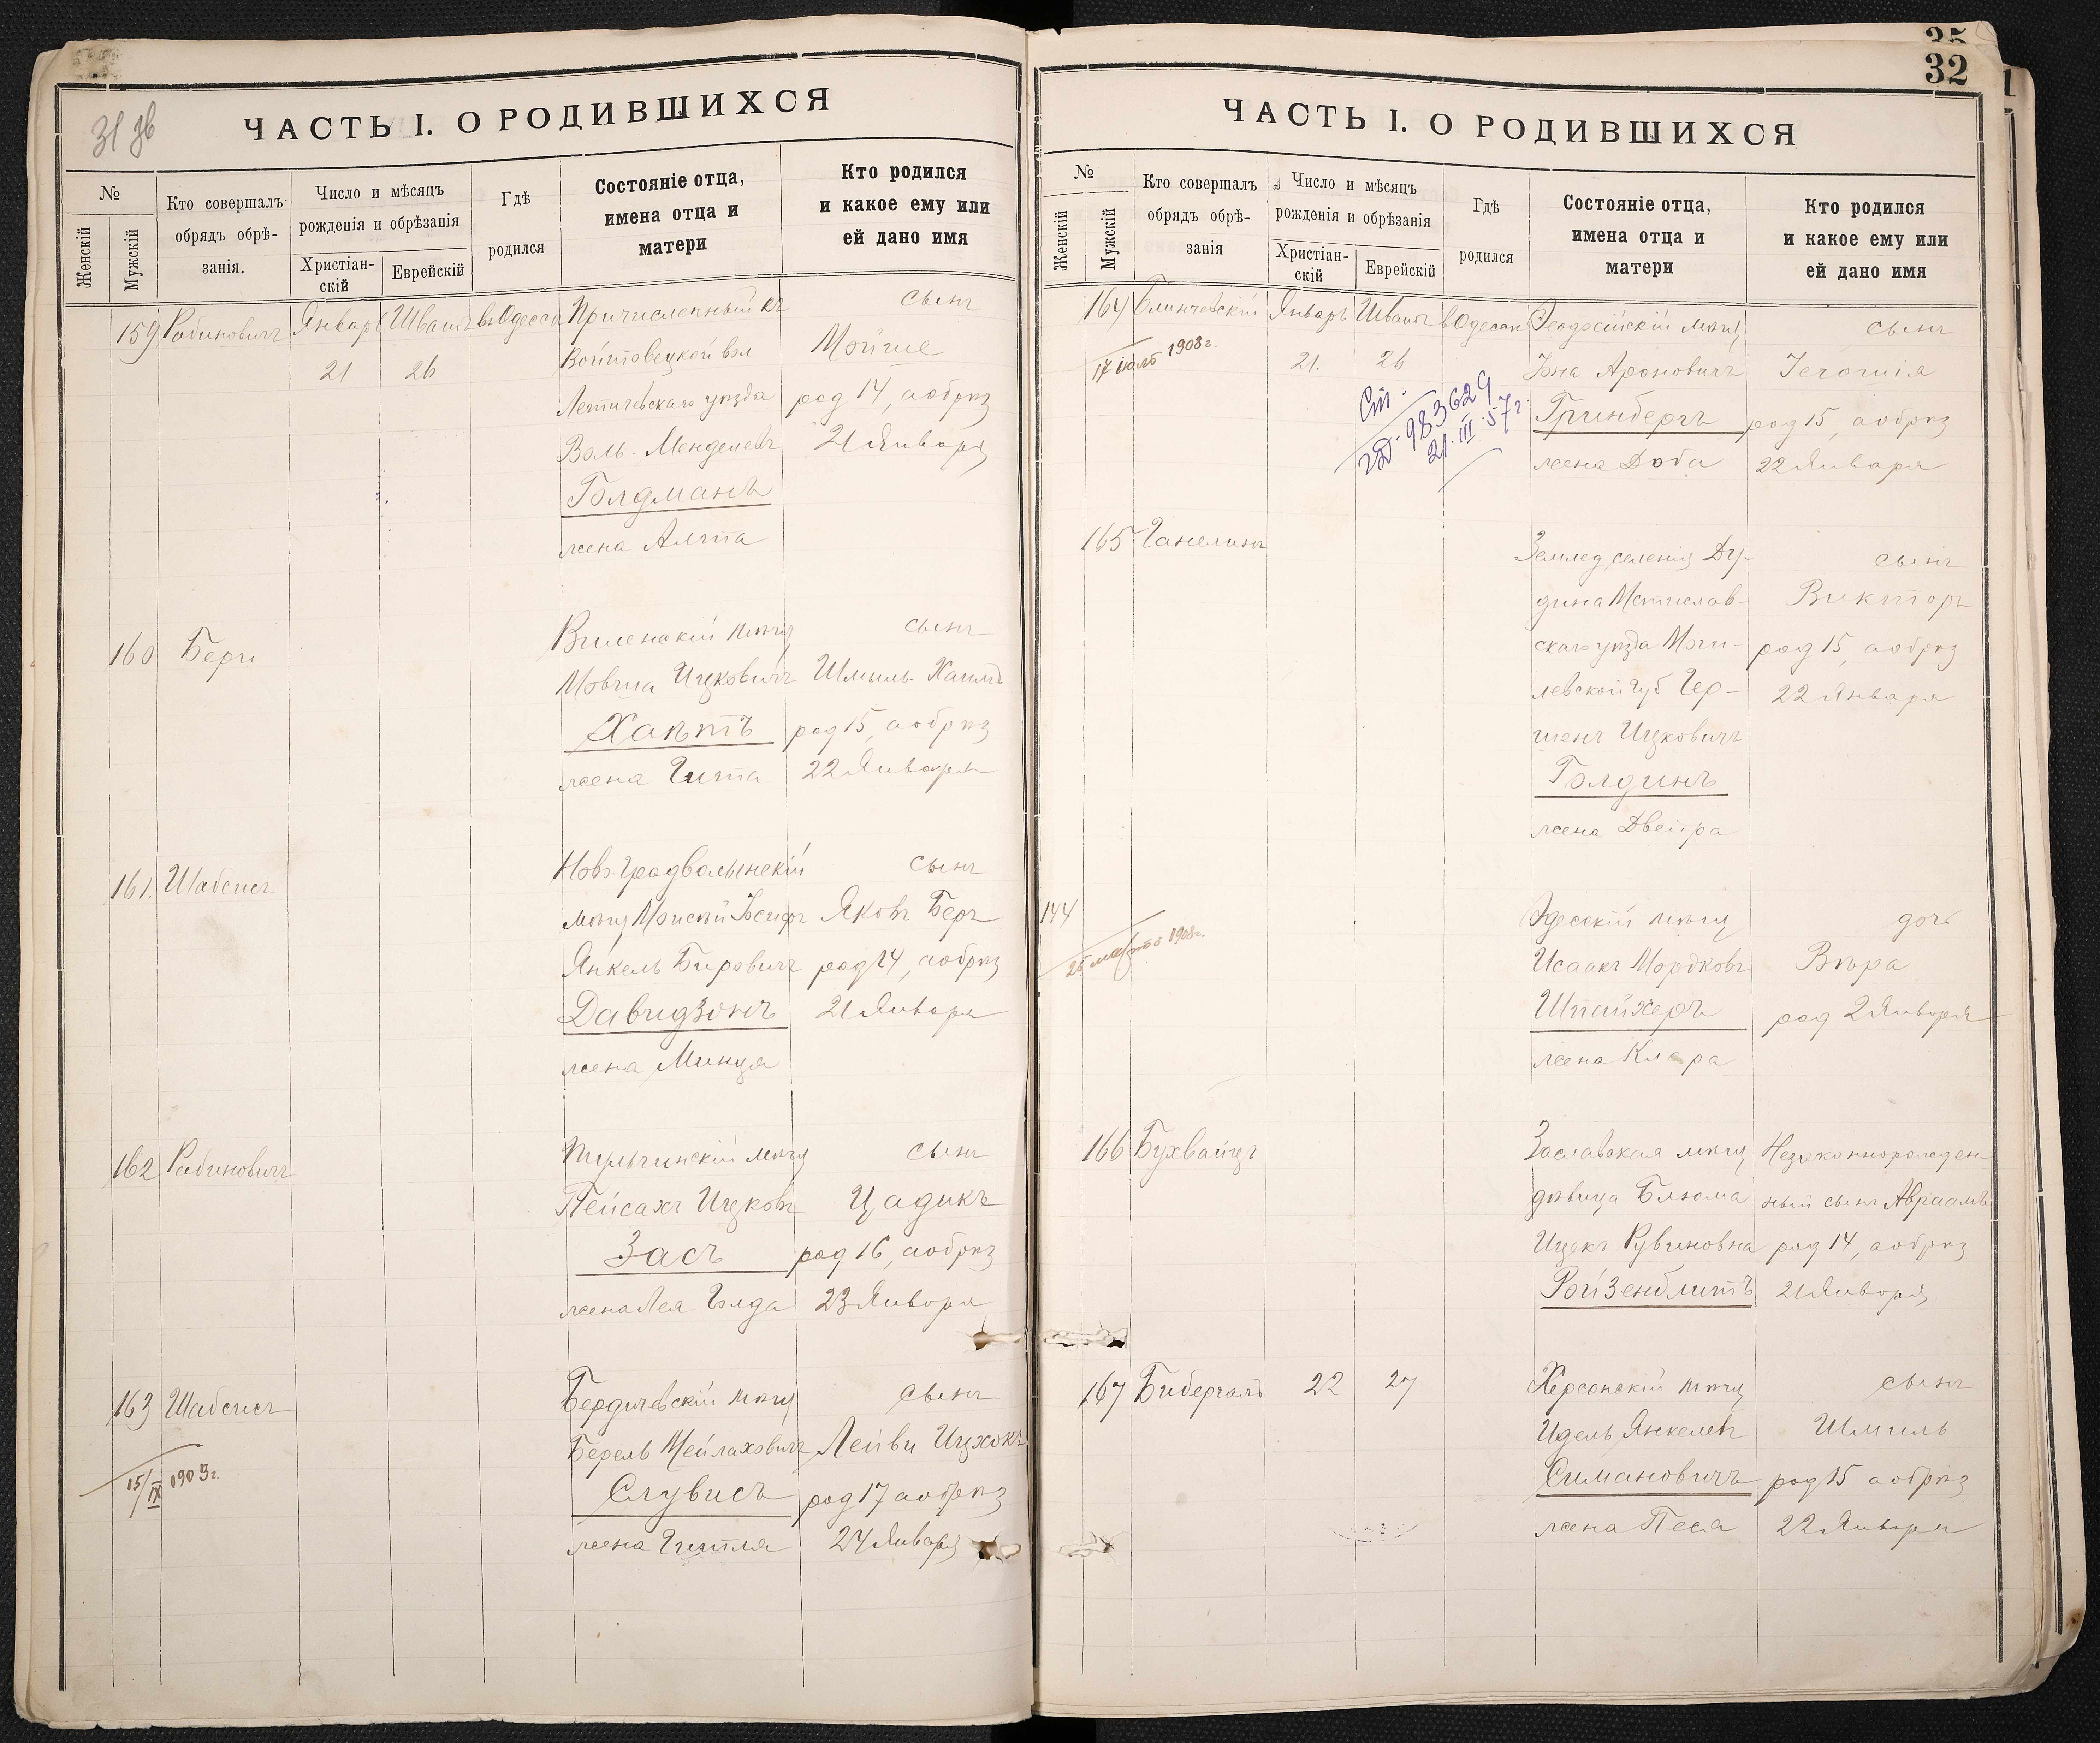 31 зв
ЧАСТЬ I. О РОДИВШИХСЯ
№
Женскій
Мужскій
Кто совершалъ
обрядъ обрѣ-
занія.
Число и мѣсяцъ
рожденія и обрѣзанія
Христіан-
скій
Еврейскій
Гдѣ
родился
Состояніе отца,
имена отца и
матери
Кто родился
и какое ему или
ей дано имя
159 Рабиновичъ Январь Шватъ въ Одессѣ Причисленный къ сынъ
21 26 Войтовецкой вол Мойше
Летичевскаго уѣзда род 14, а обрѣз
Воль-Менделевъ 21 Января
Голдманъ
жена Алта
160 Берг Виленскій мѣщ сынъ
Мовша Ицковичъ Шмыль-Хаимъ
род 15, а обрѣз
жена Гита 22 Января
161. Шабсисъ Ново-Градволынскій сынъ
мѣщ Яковъ Беръ
Янкель Бировичъ род 14, а обрѣз
Давидзонъ 21 Января
жена Минця
162 Рабиновичъ Тульчинскій мѣщ сынъ
Пейсахъ Ицковъ Цадикъ
Засъ род 16, а обрѣз
жена Лея Голда 23 Января
163 Шабсисъ Бердичевскій мѣщ сынъ
Берель Мейлаховичъ Лейви Ицхокъ
15/IX 1903г. Слувисъ род 17 а обрѣз
жена Гитля 24 Января
35
32
ЧАСТЬ I. О РОДИВШИХСЯ
№
Женскій
Мужскій
Кто совершалъ
обрядъ обрѣ-
занія
Число и мѣсяцъ
рожденія и обрѣзанія
Христіан-
скій
Еврейскій
Гдѣ
родился
Состояніе отца,
имена отца и
матери
Кто родился
и какое ему или
ей дано имя
164 Январь Шватъ в Одессѣ Феодосійскій мѣщ сынъ
17 іюля 1908г. 21. 26 Іона Ароновичъ Іеремія
983629 Гринбергъ род 15, а обрѣз
21.III.57г. жена Доба 22 Января
165 Ганелинъ Землед селенія Ду- сынъ
дина Мстислав- Викторъ
скаго уѣзда Моги- род 15, а обрѣз
левской губ Гер- 22 Января
шенъ Ицковичъ
Голдинъ
жена Двейра
144 Одесскій мѣщ дочь
26 марта 1908г. Исаакъ Мордковъ Вѣра
Шпайхеръ род 2 Января
жена Клара
166 Бухвайцъ Заславская мѣщ Незаконнорожден-
дѣвица Блюма ный сынъ Авраамъ
Ицекъ Рувиновна род 14, а обрѣз
Ройзенблитъ 21 Января
167 Бибергалъ 22 27 Херсонскій мѣщ сынъ
Идель Янкелевъ Шмиль
Симановичъ род 15 а обрѣз
жена Песа 22 Января